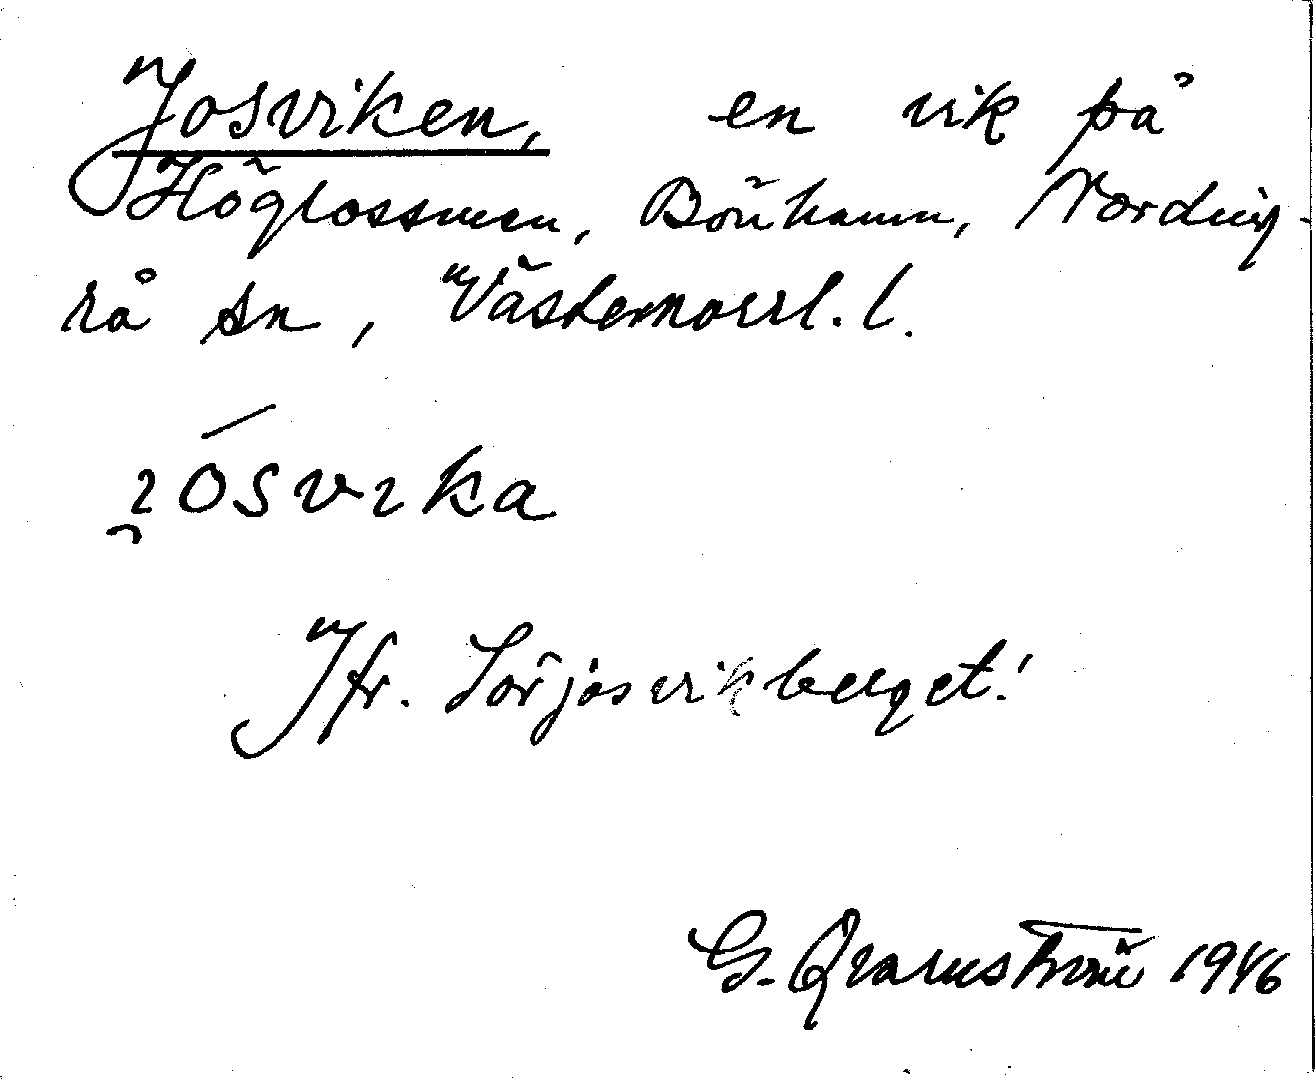 Josviken, en vik på
Höglossmen, Bönhamn, Nording-
rå sn, Västernorrl. l.
ı̯ósvıka
Jfr. Sörjosvikberget!
G. Qvarnström 1946